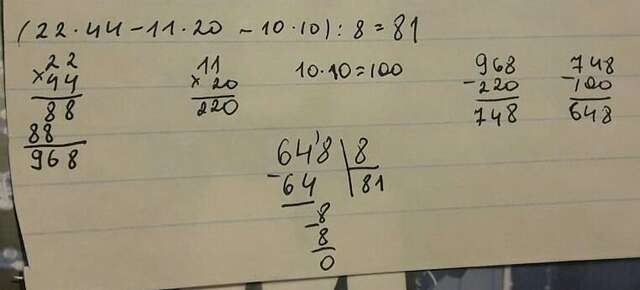 (22·44-11·20-10·10):8=81
22
×44
88
88
968
11
×20
220
10·10=100
968
-220
748
748
-100
648
64'8|8
-64|81
-8
8
0